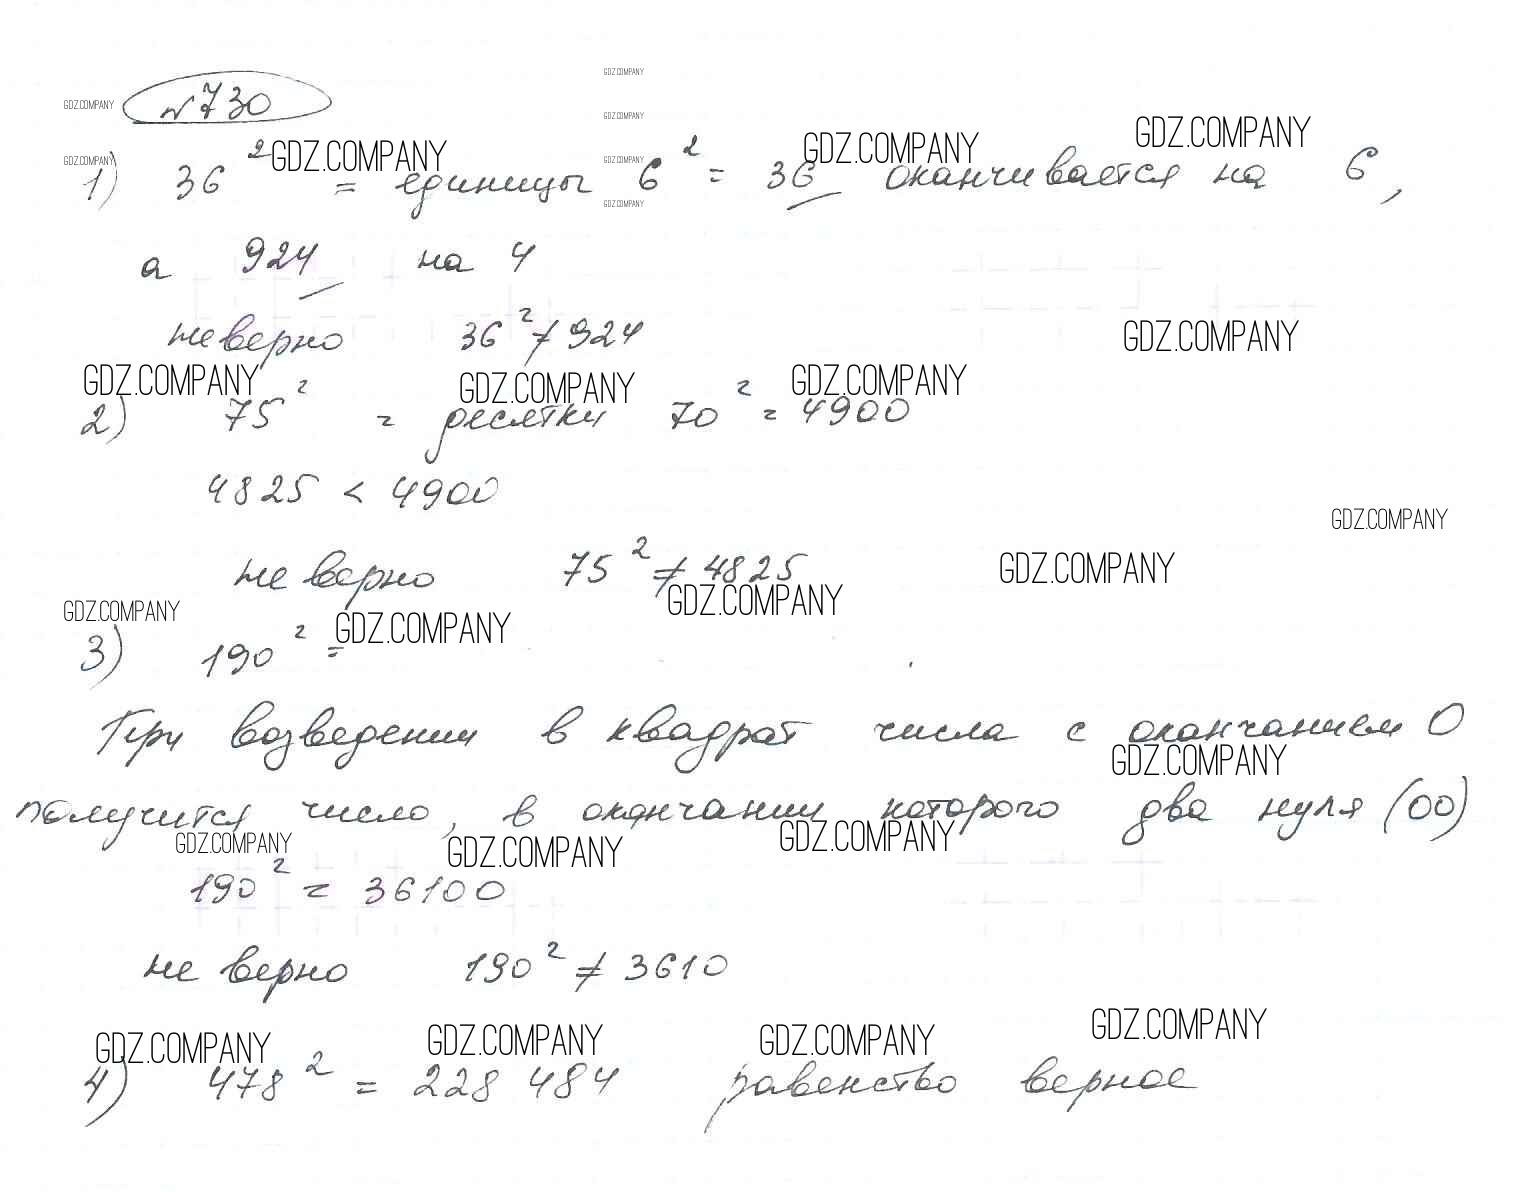 GDZ.COMPANY
GDZ.COMPANY №730
GDZ.COMPANY
GDZ.COMPANY GDZ.COMPANY GDZ.COMPANY GDZ.COMPANY GDZ.COMPANY
1) 36² = единицы 6² = 36 оканчивается на 6,
GDZ.COMPANY
а 924 на 4
неверно 36² ≠ 924
GDZ.COMPANY
GDZ.COMPANY GDZ.COMPANY GDZ.COMPANY
2) 75² = десятки 70² = 4900
4825 < 4900
GDZ.COMPANY
не верно 75² ≠ 4825
GDZ.COMPANY
GDZ.COMPANY GDZ.COMPANY GDZ.COMPANY
3) 190² =
При возведении в квадрат числа с окончанием 0
GDZ.COMPANY
получится число, в окончании которого два нуля (00)
GDZ.COMPANY GDZ.COMPANY GDZ.COMPANY
190² = 36100
не верно 190² ≠ 3610
GDZ.COMPANY GDZ.COMPANY GDZ.COMPANY GDZ.COMPANY
4) 478² = 228 484 равенство верное